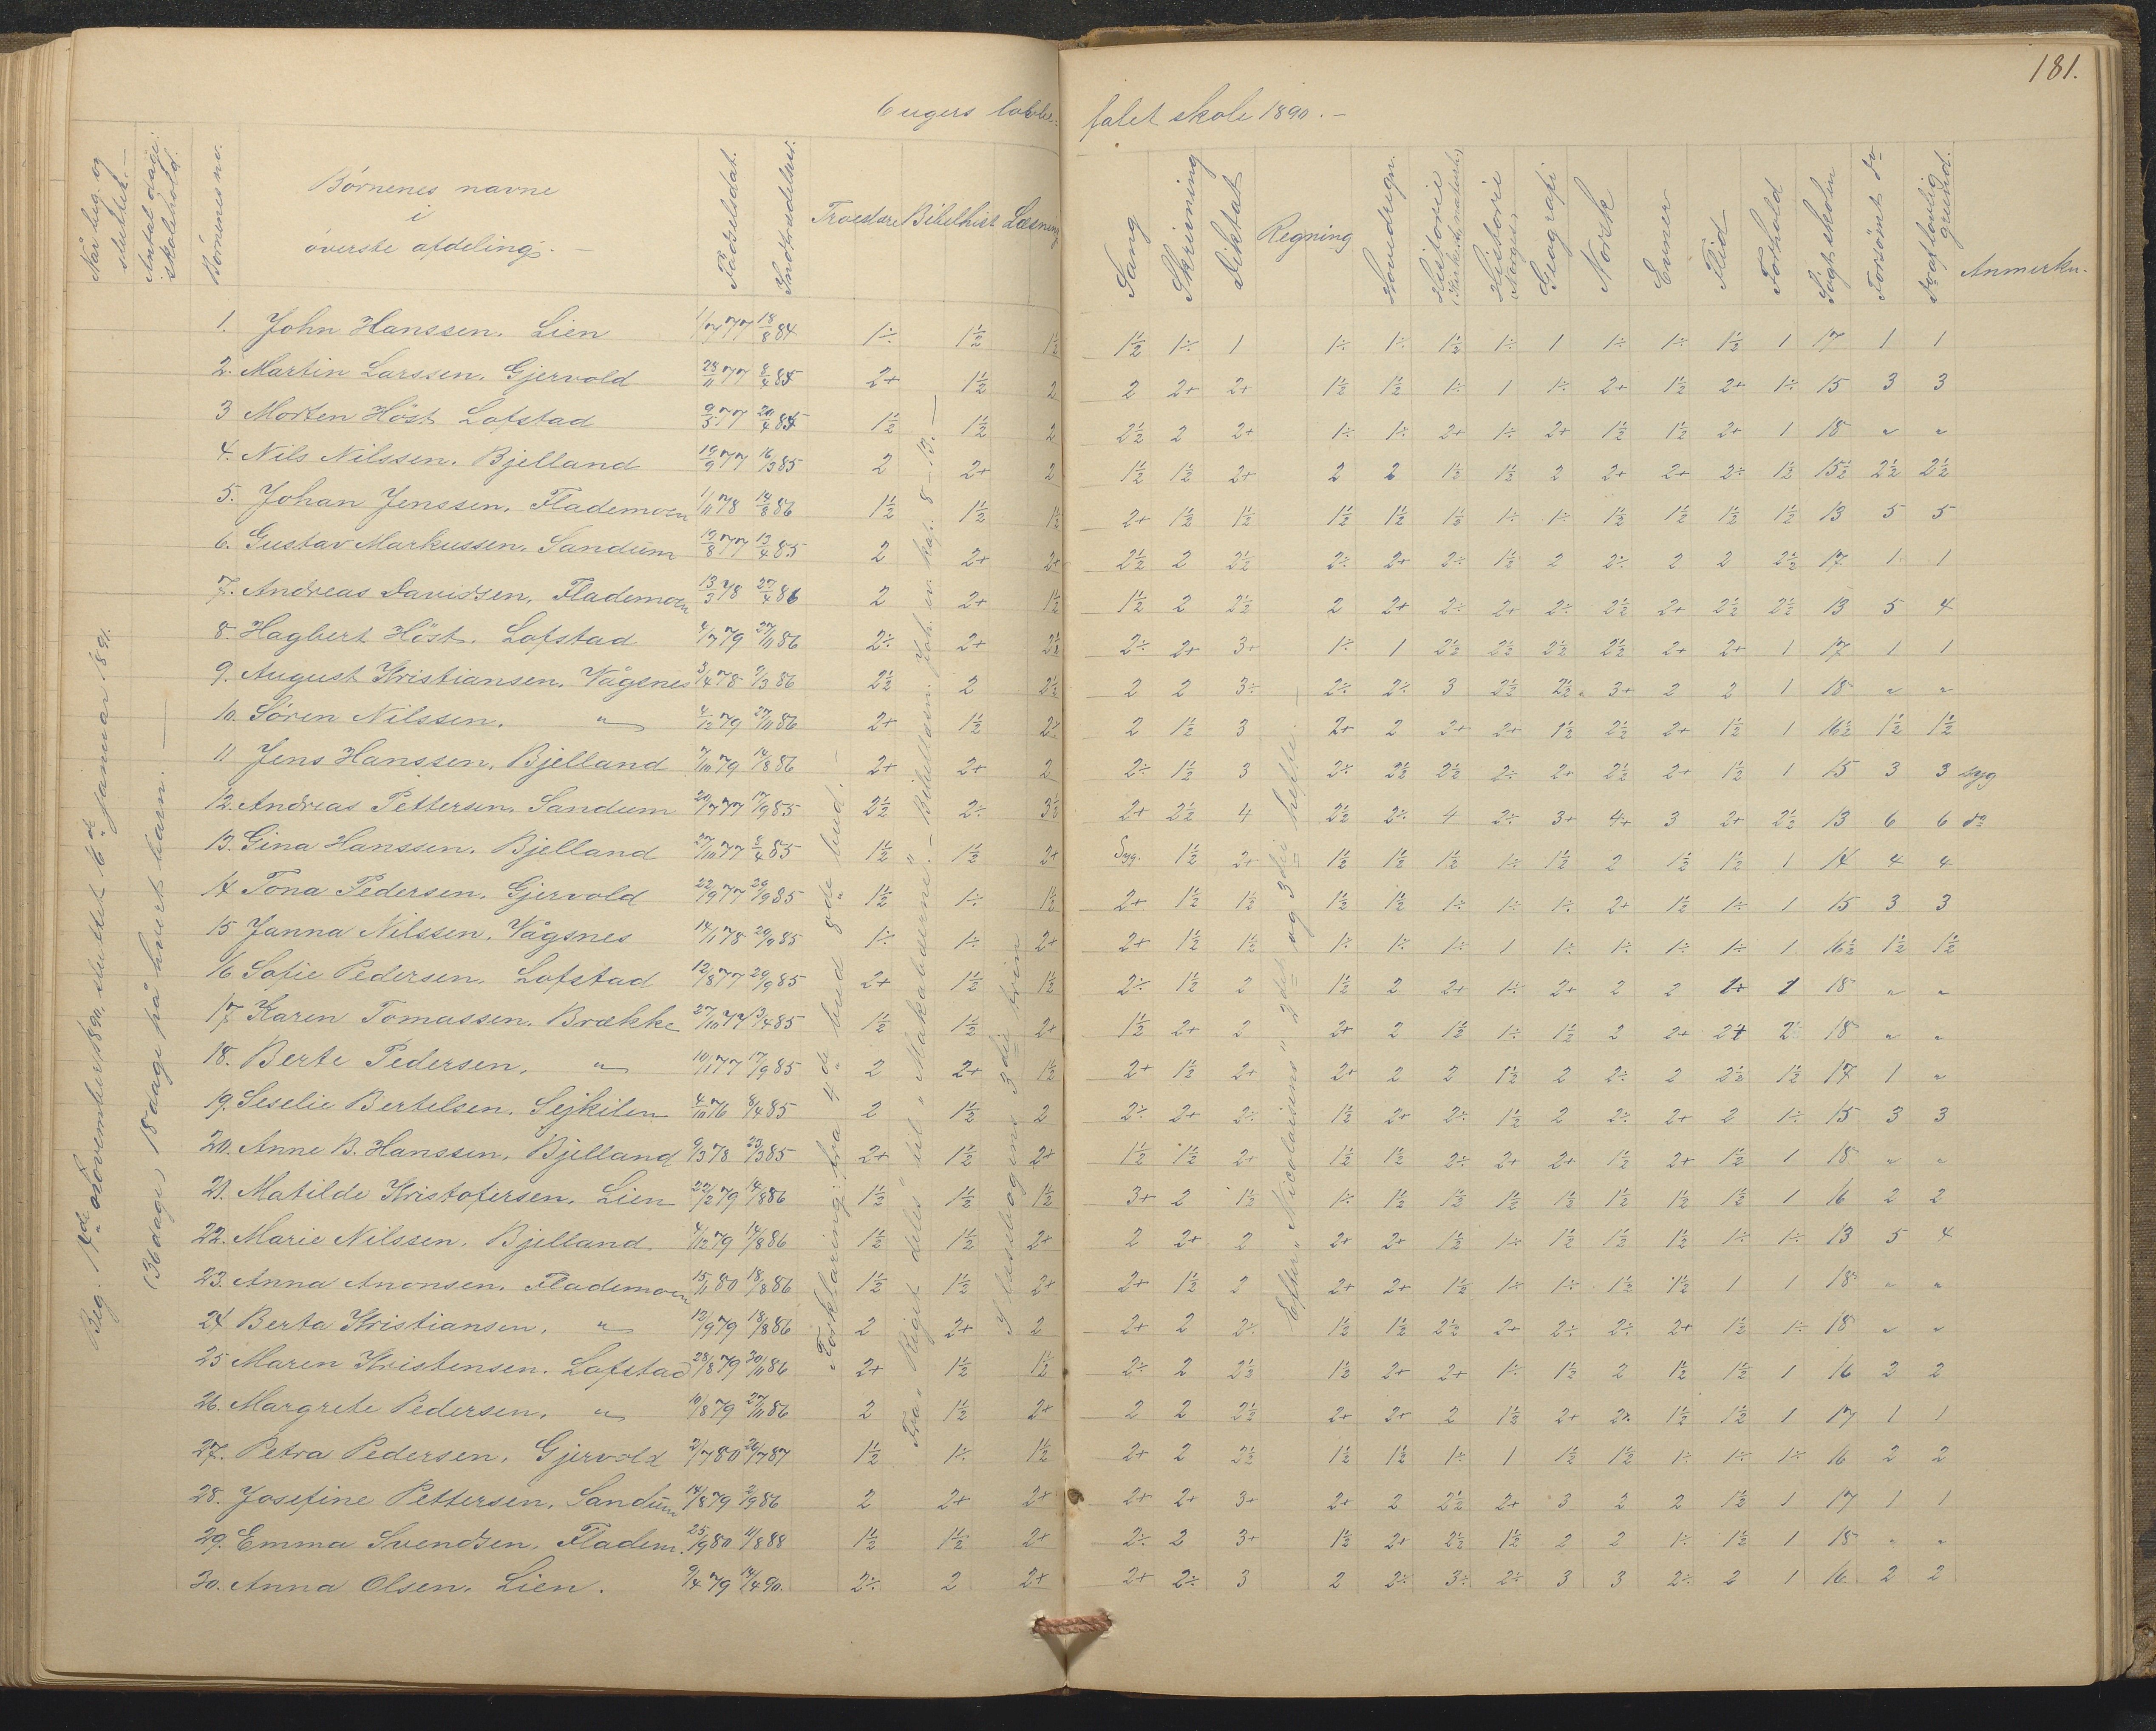 181.
6 ugers lovbe=
falet skole 1890. –
Når beg. og sluttet. –
Antal dage skolehold.
Børnenes nr.
Børnenes navne
i
överste afdeling. –
Födselsdat.
Indtrædelses.
Troeslære Bibelhist Læsning
Sang
Skrivning
Diktat
Regning
Hovedregn.
Historie
Historie (Norges)
Geografi
Norsk
Evner
Flid
Forhold
Søgt skolen
Forsömt do
Do af lovlig grund.
Anmerkn.
Beg. 1de november 1890, sluttet 6te januar 1891.
(36 dage) 18 dage på hvert barn. –
Forklaring: fra 4de bud 8de bud. –
Fra "Riget deles" til "Makabæerne". – Bibellæsn. Joh. ev. kap. 8 – 13. –
I læsebogens 3die trin
Efter "Nicolaisens" 2det og 3die hefte. –
1. John Hanssen. Lien 1/7 77 18/8 84 1÷ 1½ 1½ 1½ 1÷ 1 1÷ 1÷ 1½ 1÷ 1 1÷ 1÷ 1½ 1 17 1 1
2. Martin Larssen. Gjervold 28/11 77 8/4 85 2+ 1½ 2 2 2+ 2+ 1½ 1½ 1÷ 1 1÷ 2+ 1½ 2+ 1÷ 15 3 3
3 Morten Höst Lofstad 9/5 77 20/4 85 1½ 1½ 2 2½ 2 2+ 1÷ 1÷ 2+ 1÷ 2+ 1½ 1½ 2+ 1 18 " "
4. Nils Nilssen. Bjelland 19/9 77 16/3 85 2 2+ 2 1½ 1½ 2+ 2 2 1½ 1½ 2 2+ 2+ 2÷ 1½ 15½ 2½ 2½
5. Johan Jenssen. Flademoen 1/11 78 14/8 86 1½ 1½ 1½ 2+ 1½ 1½ 1½ 1½ 1½ 1÷ 1÷ 1½ 1½ 1½ 1½ 13 5 5
6. Gustav Markussen. Sandum 19/8 77 13/4 85 2 2+ 2+ 2½ 2 2½ 2÷ 2+ 2÷ 1½ 2 2÷ 2 2 2½ 17 1 1
7. Andreas Davidsen. Flademoen 13/3 78 27/4 86 2 2+ 1½ 1½ 2 2½ 2 2+ 2÷ 2+ 2÷ 2½ 2+ 2½ 2½ 13 5 4
8. Hagbert Höst. Lofstad 4/7 79 27/11 86 2÷ 2+ 2½ 2÷ 2+ 3+ 1÷ 1 2½ 2½ 2½ 2½ 2+ 2+ 1 17 1 1
9. August Kristiansen. Vågsnes 3/4 78 9/3 86 2½ 2 2½ 2 2 3÷ 2÷ 2÷ 3 2½ 2½ 3+ 2 2 1 18 " "
10. Sören Nilssen. " 4/12 79 27/11 86 2+ 1½ 2½ 2 1½ 3 2+ 2 2+ 2+ 1½ 2½ 2+ 1½ 1 16½ 1½ 1½
11 Jens Hanssen. Bjelland 7/10 79 14/8 86 2+ 2+ 2 2÷ 1½ 3 2÷ 2½ 2½ 2÷ 2+ 2½ 2+ 1½ 1 15 3 3 syg
12. Andreas Pettersen. Sandum 20/7 77 17/9 85 2½ 2÷ 3½ 2+ 2½ 4 2½ 2÷ 4 2÷ 3+ 4+ 3 2+ 2½ 13 6 6 do
13. Gina Hanssen. Bjelland 27/10 77 8/4 85 1½ 1½ 2+ Syg. 1½ 2+ 1½ 1½ 1½ 1÷ 1½ 2 1½ 1½ 1 14 4 4
14 Tona Pedersen. Gjervold 22/9 77 29/9 85 1½ 1÷ 1½ 2+ 1½ 1½ 1½ 1½ 1÷ 1÷ 1÷ 2+ 1½ 1÷ 1 15 3 3
15 Janna Nilssen. Vågsnes 14/1 78 29/9 85 1÷ 1÷ 2+ 2+ 1½ 1½ 1÷ 1÷ 1÷ 1 1÷ 1÷ 1÷ 1÷ 1 16½ 1½ 1½
16 Sofie Pedersen. Lofstad 12/8 77 29/9 85 2+ 1½ 1½ 2÷ 1½ 2 1½ 2 2+ 1÷ 2+ 2 2 1÷ 1 18 " "
17 Karen Tomassen. Brække 27/10 77 13/4 85 1½ 1½ 2+ 1½ 2+ 2 2+ 2 1½ 1÷ 1½ 2 2+ 2+ 2 18 " "
18. Berte Pedersen. " 10/1 77 17/9 85 2 2+ 1½ 2+ 1½ 2+ 2+ 2 2 1½ 2 2÷ 2 2½ 1½ 17 1 "
19. Seselie Bertelsen. Sejkilen 4/10 76 8/4 85 2 1½ 2 2÷ 2+ 2÷ 1½ 2+ 2÷ 1½ 2 2÷ 2+ 2 1÷ 15 3 3
20. Anne B. Hanssen. Bjelland 9/3 78 23/3 85 2+ 1½ 2+ 1½ 1½ 2+ 1½ 1½ 2÷ 2+ 2+ 1½ 2+ 1½ 1 18 " "
21. Matilde Kristofersen. Lien 22/2 79 14/8 86 1½ 1½ 1½ 3+ 2 1½ 1÷ 1½ 1½ 1½ 1½ 1½ 1½ 1½ 1 16 2 2
22. Marie Nilssen. Bjelland. 4/12 79 14/8 86 1½ 1½ 2+ 2 2+ 2 2+ 2+ 1½ 1÷ 1½ 1½ 1½ 1÷ 1÷ 13 5 4
23. Anna Anonsen. Flademoen 15/11 80 18/8 86 1½ 1½ 2+ 2+ 1½ 2 2+ 2+ 1½ 1÷ 1÷ 1½ 1½ 1 1 18 " "
24 Berta Kristiansen. " 12/9 79 18/8 86 2 2+ 2 2+ 2 2÷ 1½ 1½ 2½ 2+ 2÷ 2÷ 2+ 1½ 1÷ 18 " "
25 Maren Kristensen. Lofstad 28/8 79 30/11 86 2+ 1½ 1½ 2÷ 2 2½ 1½ 2+ 2+ 1÷ 1½ 2 1½ 1½ 1 16 2 2
26. Margrete Pedersen. " 10/8 79 27/11 86 2 1½ 2+ 2 2 2½ 2+ 2+ 2 1½ 2+ 2÷ 1½ 1½ 1 17 1 1
27. Petra Pedersen. Gjervold 2/7 80 26/7 87 1½ 1÷ 1½ 2+ 2 2½ 1½ 1½ 1÷ 1 1½ 1½ 1÷ 1÷ 1÷ 16 2 2
28. Josefine Pettersen. Sandum 14/8 79 2/9 86 2 2+ 2+ 2+ 2+ 3+ 2+ 2 2½ 2+ 3 2 2 1½ 1 17 1 1
29. Emma Svendsen. Fladem. 25/9 80 11/8 88 1½ 1½ 2+ 2÷ 2 3+ 1½ 2+ 2½ 1½ 2 2 1÷ 1½ 1 18 " "
30. Anna Olsen. Lien. 9/4 79 14/4 90. 2÷ 2 2+ 2+ 2÷ 3 2 2÷ 3÷ 2÷ 3 3 2÷ 2 1 16 2 2